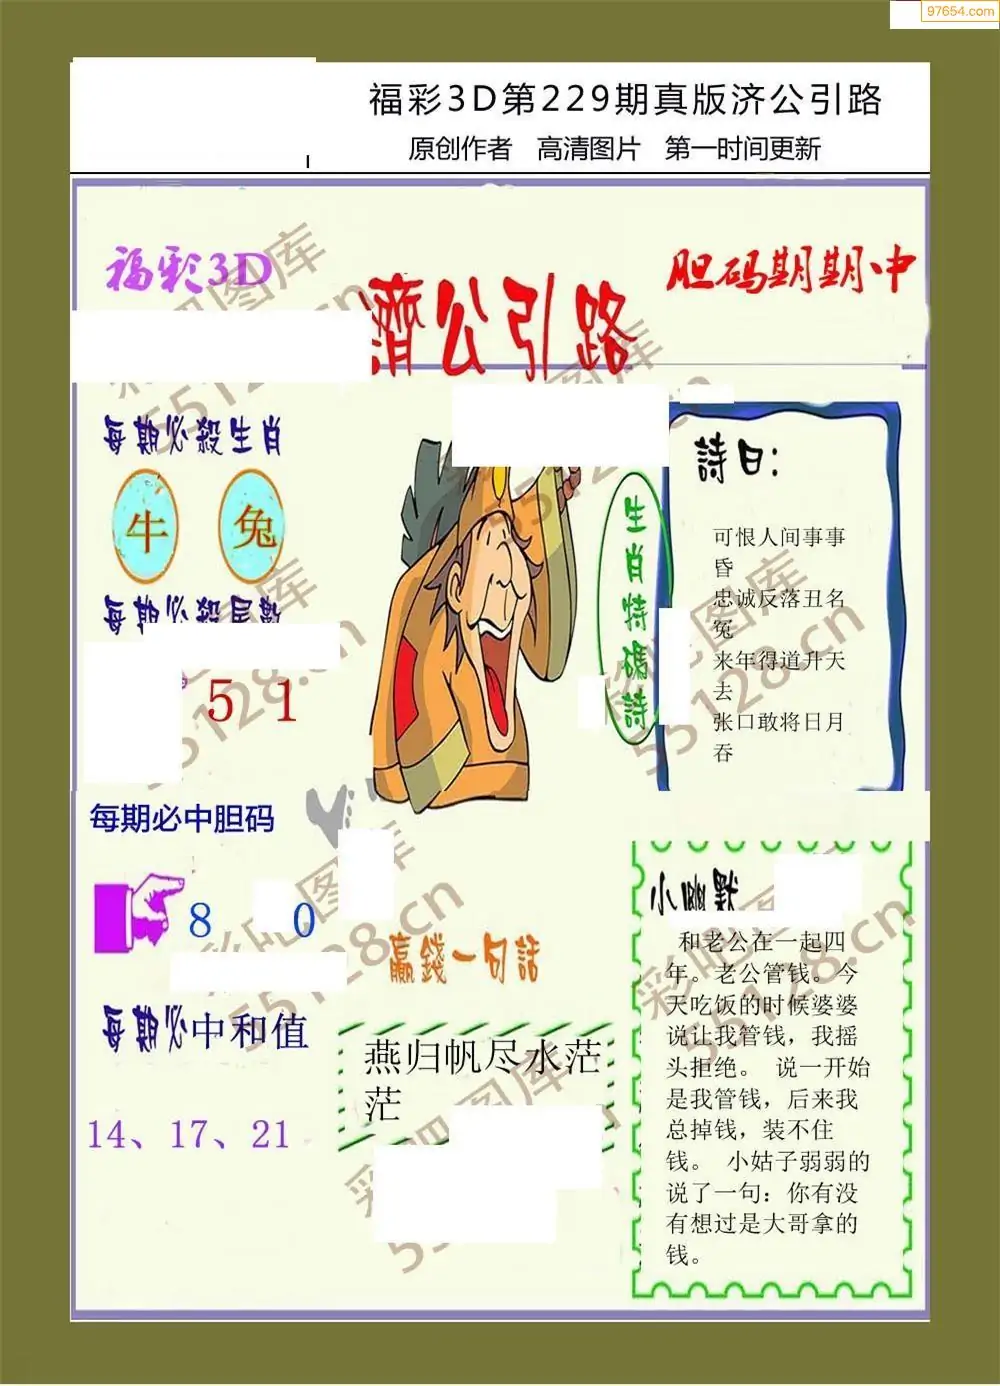 97654.com
福彩3D第229期真版济公引路
原创作者 高清图片 第一时间更新
福彩3D
胆码期期中
濟公引路
每期必殺生肖
牛 兔
每期必殺尾數
5 1
生肖特碼詩
詩曰:
可恨人间事事
昏
忠诚反落丑名
冤
来年得道升天
去
张口敢将日月
吞
每期必中胆码
8 0
每期必中和值
14、17、21
赢錢一句話
燕归帆尽水茫
茫
小幽默
和老公在一起四
年。老公管钱。今
天吃饭的时候婆婆
说让我管钱，我摇
头拒绝。 说一开始
是我管钱，后来我
总掉钱，装不住
钱。 小姑子弱弱的
说了一句：你有没
有想过是大哥拿的
钱。
彩吧图库
55128.cn
彩吧图库
55128.cn
彩吧图库
55128.cn
彩吧图库
55128.cn
彩吧图库
55128.cn
彩吧图库
55128.cn
彩吧图库
55128.cn